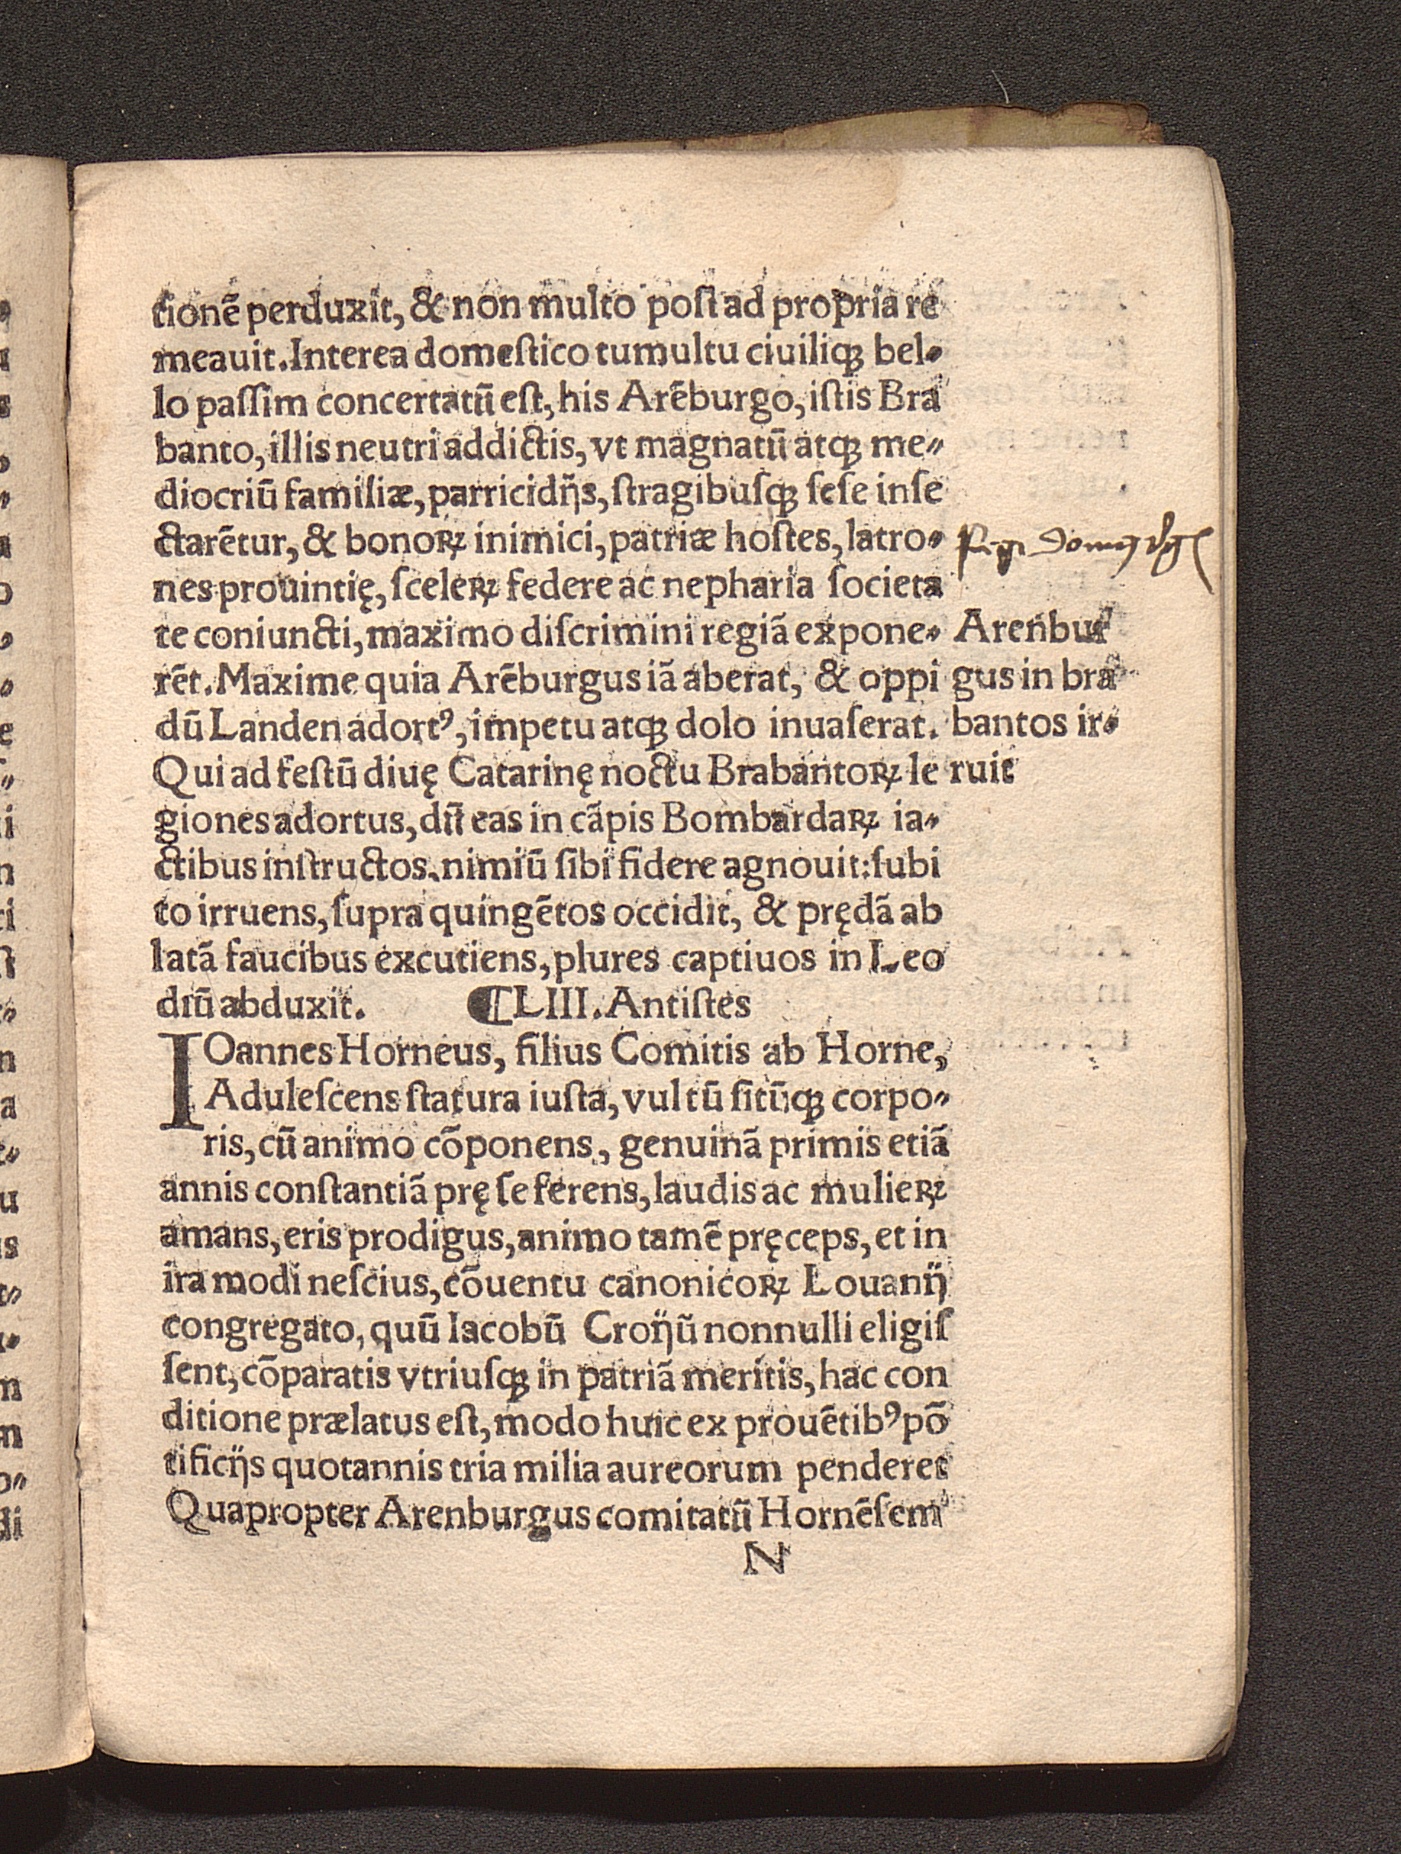 tionē perduxit, & non multo post ad propria re
meauit. Interea domestico tumultu ciuiliqꝫ bel⸗
lo passim concertatū est, his Arēburgo, istis Bra
banto, illis neutri addictis, vt magnatū atqꝫ me⸗
diocriū familiæ, parricidijs, stragibusqꝫ sese inse
ctarētur, & bonoꝝ inimici, patriæ hostes, latro⸗
nes prouintię, sceleꝝ federe ac nepharia societa
te coniuncti, maximo discrimini regiā expone⸗
rēt. Maxime quia Arēburgus iā aberat, & oppi
dū Landen adortꝰ, impetu atqꝫ dolo inuaserat.
Qui ad festū diuę Catarinę noctu Brabantoꝝ le
giones adortus, dū eas in cāpis Bombardaꝝ ia⸗
ctibus instructos, nimiū sibi fidere agnouit: subi
to irruens, supra quingētos occidit, & prędā ab
latā faucibus excutiens, plures captiuos in Leo
diū abduxit. ¶LIII. Antistes
IOannes Horneus, filius Comitis ab Horne,
Adulescens statura iusta, vultū sitūqꝫ corpo⸗
ris, cū animo cōponens, genuinā primis etiā
annis constantiā prę se ferens, laudis ac mulieꝝ
amans, eris prodigus, animo tamē pręceps, et in
ira modi nescius, cōuentu canonicoꝝ Louanij
congregato, quū Iacobū Croijū nonnulli eligis
sent, cōparatis vtriusqꝫ in patriā meritis, hac con
ditione prælatus est, modo huic ex prouētibꝰ pō
tificijs quotannis tria milia aureorum penderet
Quapropter Arenburgus comitatū Hornēsem
N
Arenbur
gus in bra
bantos ir⸗
ruit